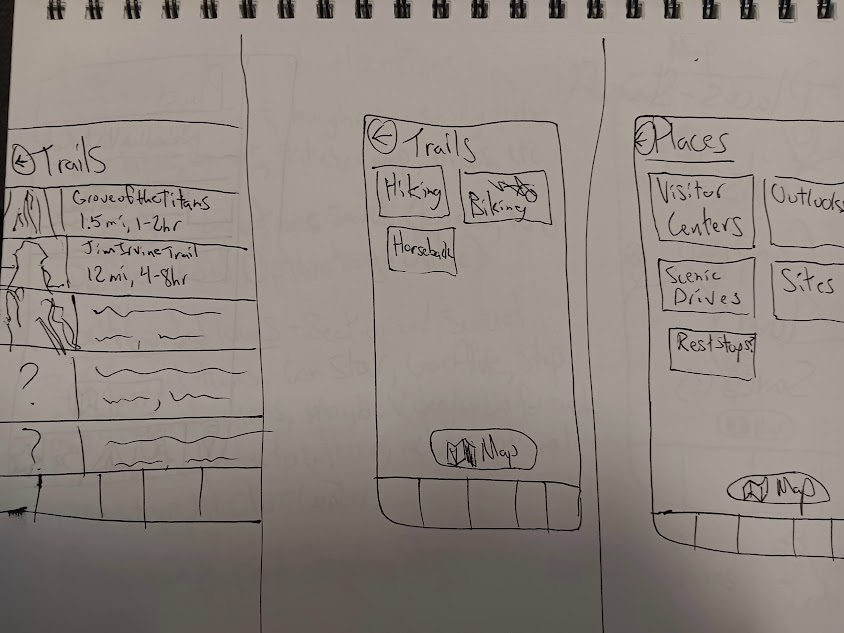 Trails
Grove of the Titans
1.5 mi, 1-2hr
Jim Irvine Trail
12 mi, 4-8hr
?
?
Trails
Hiking
Biking
Horseback
Map
Places
Visitor
Centers
Outlooks
Scenic
Drives
Sites
Rest stops?
Map